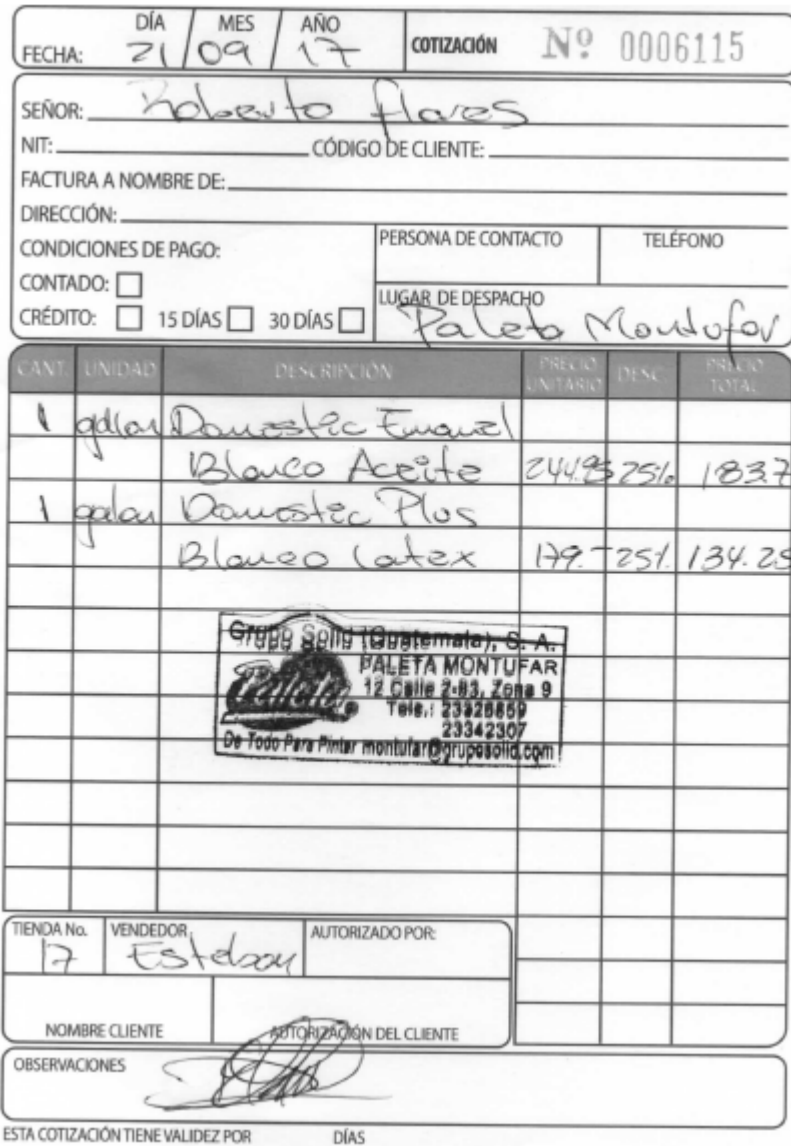 DÍA MES AÑO
FECHA: 21 / 09 / 17 COTIZACIÓN Nº 0006115
SEÑOR: Roberto flores
NIT: CÓDIGO DE CLIENTE:
FACTURA A NOMBRE DE:
DIRECCIÓN:
CONDICIONES DE PAGO: PERSONA DE CONTACTO TELÉFONO
CONTADO:
CRÉDITO: 15 DÍAS 30 DÍAS
LUGAR DE DESPACHO
Paleta Montufar
CANT. UNIDAD DESCRIPCIÓN PRECIO UNITARIO DESC. PRECIO TOTAL
1 galon Domestic Emanel
Blanco Aceite 244.95 25% 183.7
1 galon Domestic Plus
Blanco Latex 179.- 25% 134.25
Grupo Solid (Guatemala), S. A.
PALETA MONTUFAR
12 Calle 2-83, Zona 9
Tels.: 23326859
23342307
De Todo Para Pintar montufar@gruposolid.com
TIENDA No. VENDEDOR AUTORIZADO POR:
17 Esteban
NOMBRE CLIENTE AUTORIZACIÓN DEL CLIENTE
OBSERVACIONES
ESTA COTIZACIÓN TIENE VALIDEZ POR DÍAS